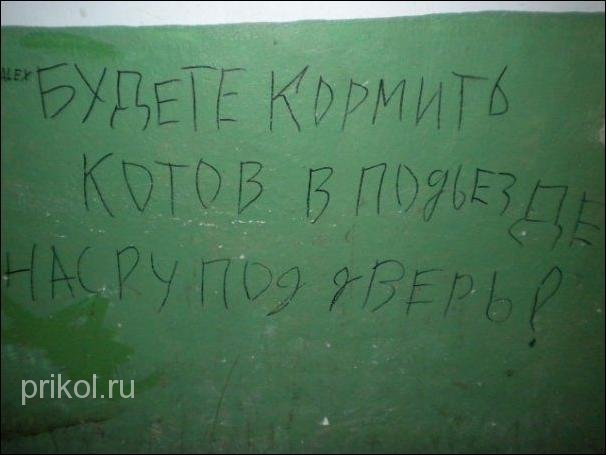 ALEX
БУДЕТЕ КОРМИТЬ
КОТОВ В ПОДЬЕЗДЕ
НАСРУ ПОД ДВЕРЬ!
prikol.ru